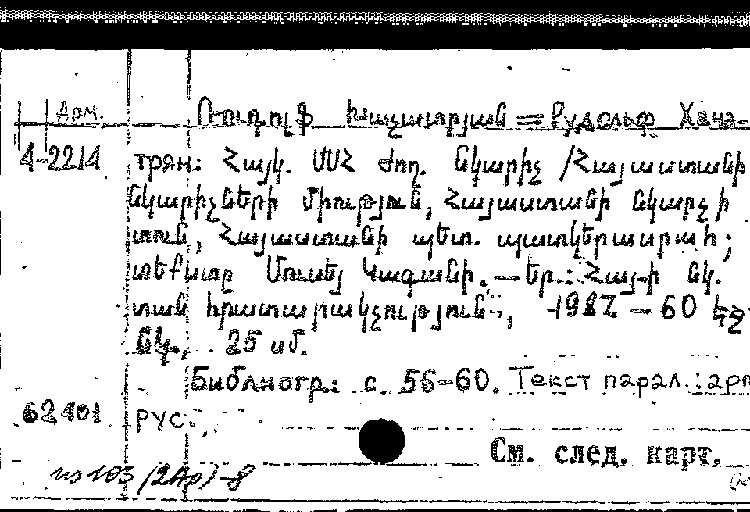 Арм. Ռուդոլֆ Խաչատրյան = Рудольф Хача-
4-2214 трян: Հայկ. ՍՍՀ ժող. նկարիչ /Հայաստանի
նկարիչների միություն, Հայաստանի նկարչի
տուն, Հայաստանի պետ. պատկերասրահ;
տեքստը Մուսեյ — Եր.: Հայ-ի նկ.
տան հրատարակչություն, 1987 — 60 էջ
նկ., 25 սմ.
Библиогр.: с. 56-60. Текст парал.: арм
62401 рус.
См. след. карт.